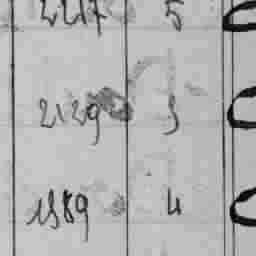 2217 5
2129 3
1989 4